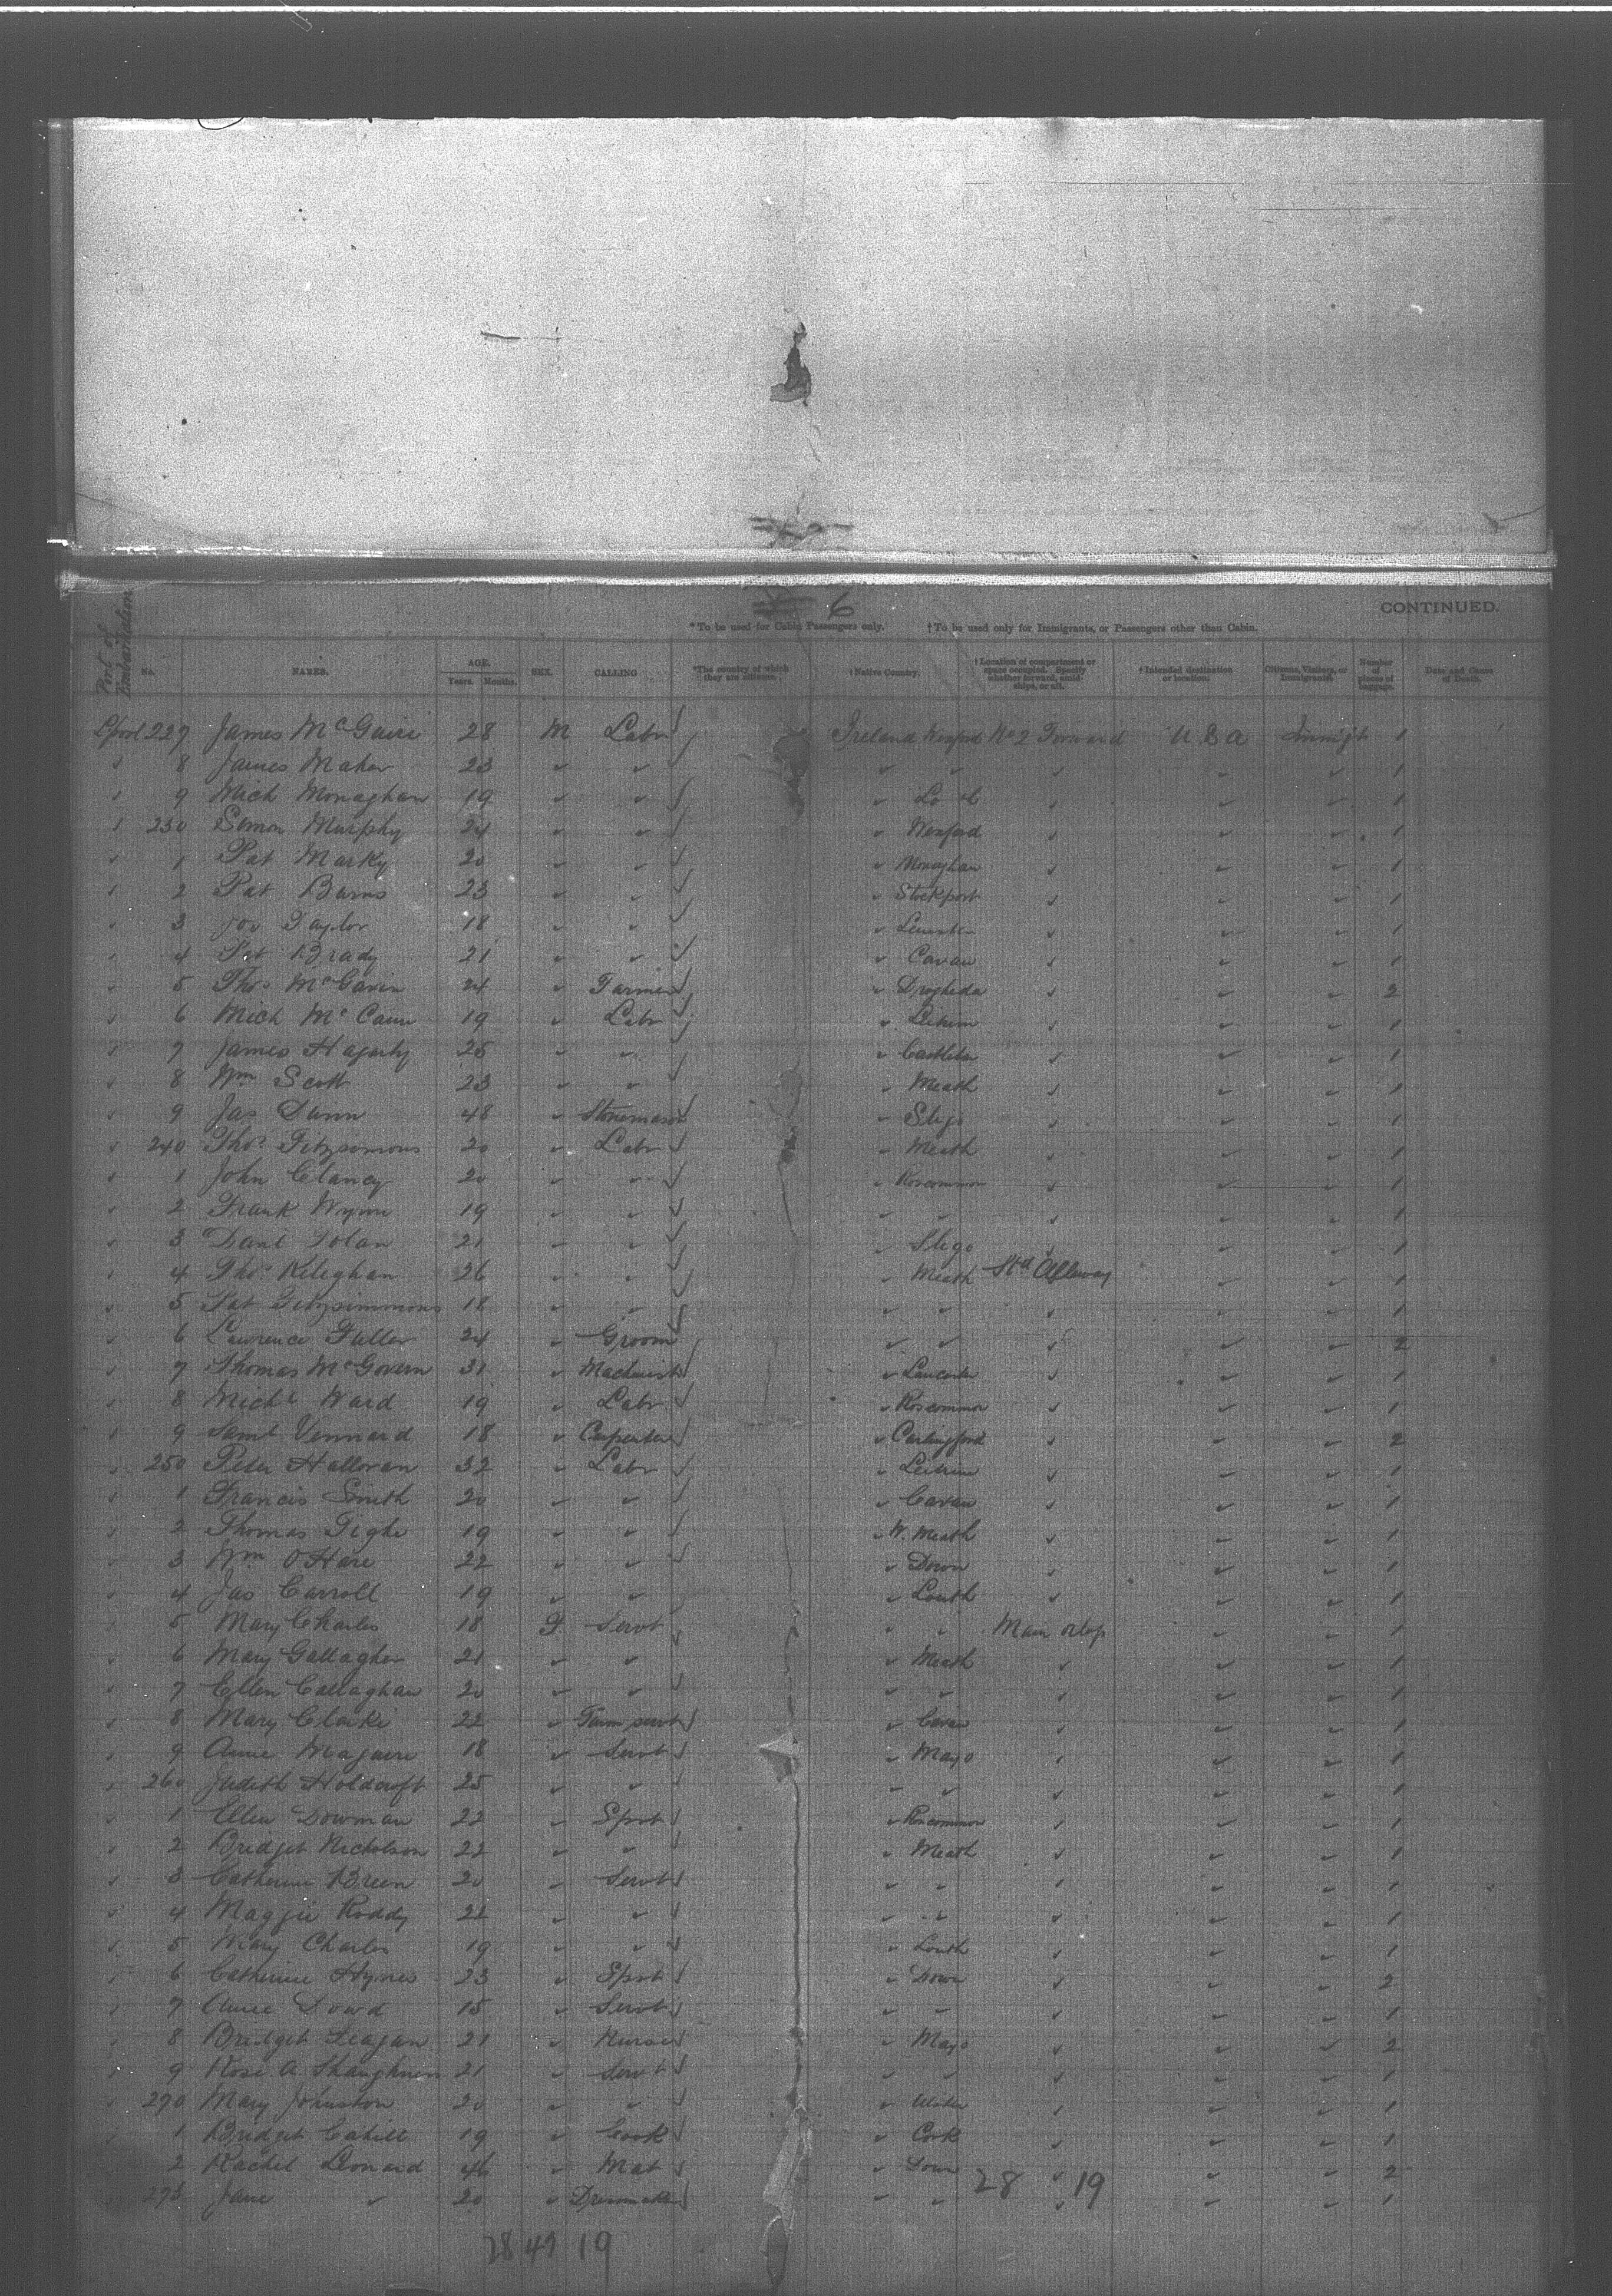 6
CONTINUED.
*To be used for Cabin Passengers only. †To be used only for Immigrants, or Passengers other than Cabin.
Port of Embarkation No. NAMES. AGE. Years. Months. SEX. CALLING *The country of which they are citizens. †Native Country. †Location of compartment or space occupied. Specify whether forward, amidships, or aft. †Intended destination or location. Citizens, Visitors, or Immigrants. Number of pieces of luggage. Date and Cause of Death.
Lpool 227 James McGuire 28 M Labr Ireland Wexford No 2 Forward U.S.A Immigt 1
✓ 8 James Maher 23 ✓ ✓ ✓ ✓ ✓ ✓ ✓ 1
✓ 9 Mich Monaghan 19 ✓ ✓ ✓ ✓ ✓ ✓ 1
✓ 230 Simon Murphy 24 ✓ ✓ ✓ Wexford ✓ ✓ ✓ 1
✓ 1 Pat Marky 20 ✓ ✓ ✓ Monaghan ✓ ✓ ✓ 1
✓ 2 Pat Burns 23 ✓ ✓ ✓ Stockport ✓ ✓ ✓ 1
✓ 3 Jos Taylor 18 ✓ ✓ ✓ Leinster ✓ ✓ ✓ 1
✓ 4 Pat Brady 21 ✓ ✓ ✓ Cavan ✓ ✓ ✓ 1
✓ 5 Thos McGavin 24 ✓ Farmer ✓ Drogheda ✓ ✓ ✓ 2
✓ 6 Mich McCann 19 ✓ Labr ✓ Leitrim ✓ ✓ ✓ 1
✓ 7 James Hagarty 25 ✓ ✓ ✓ ✓ ✓ ✓ 1
✓ 8 Wm Scott 23 ✓ ✓ ✓ Meath ✓ ✓ ✓ 1
✓ 9 Jas Dunn 48 ✓ Stonemason ✓ Sligo ✓ ✓ ✓ 1
✓ 240 Thos Fitzsomons 20 ✓ Labr ✓ Meath ✓ ✓ ✓ 1
✓ 1 John Clancy 20 ✓ ✓ ✓ Roscommon ✓ ✓ ✓ 1
✓ 2 Frank Wynn 19 ✓ ✓ ✓ ✓ ✓ ✓ ✓ 1
✓ 3 Danl Dolan 21 ✓ ✓ ✓ Sligo ✓ ✓ ✓ 1
✓ 4 Thos Keleghan 26 ✓ ✓ ✓ Meath ✓ ✓ 1
✓ 5 Pat Fitzsimmons 18 ✓ ✓ ✓ ✓ ✓ ✓ ✓ 1
✓ 6 Lawrence Fuller 24 ✓ Groom ✓ ✓ ✓ ✓ ✓ 2
✓ 7 Thomas McGovern 31 ✓ Machinist ✓ Lancaster ✓ ✓ ✓ 1
✓ 8 Michl Ward 19 ✓ Labr ✓ Roscommon ✓ ✓ ✓ 1
✓ 9 Saml Vennard 18 ✓ Carpenter ✓ Carlingford ✓ ✓ ✓ 2
✓ 250 Peter Halloran 32 ✓ Labr ✓ Leitrim ✓ ✓ ✓ 1
✓ 1 Francis Smith 20 ✓ ✓ ✓ Cavan ✓ ✓ ✓ 1
✓ 2 Thomas Tighe 19 ✓ ✓ ✓ W. Meath ✓ ✓ ✓ 1
✓ 3 Wm O'Hare 22 ✓ ✓ ✓ Down ✓ ✓ ✓ 1
✓ 4 Jas Carroll 19 ✓ ✓ ✓ Louth ✓ ✓ ✓ 1
✓ 5 Mary Charles 18 F Servt ✓ ✓ Main orlop ✓ ✓ 1
✓ 6 Mary Gallagher 21 ✓ ✓ ✓ Meath ✓ ✓ ✓ 1
✓ 7 Ellen Callaghan 20 ✓ ✓ ✓ ✓ ✓ ✓ ✓ 1
✓ 8 Mary Clarke 22 ✓ Farm servt ✓ Cavan ✓ ✓ ✓ 1
✓ 9 Annie Maguire 18 ✓ Servt ✓ Mayo ✓ ✓ ✓ 1
✓ 260 Judith Holdcroft 25 ✓ ✓ ✓ ✓ ✓ ✓ ✓ 1
✓ 1 Ellen Dowman 22 ✓ Spst ✓ Roscommon ✓ ✓ ✓ 1
✓ 2 Bridget Nicholson 22 ✓ ✓ ✓ Meath ✓ ✓ ✓ 1
✓ 3 Catherine Breen 20 ✓ Servt ✓ ✓ ✓ ✓ ✓ 1
✓ 4 Maggie Roddy 22 ✓ ✓ ✓ ✓ ✓ ✓ ✓ 1
✓ 5 Mary Charles 19 ✓ ✓ ✓ Louth ✓ ✓ ✓ 1
✓ 6 Catherine Hynes 23 ✓ Spst ✓ Down ✓ ✓ ✓ 2
✓ 7 Annie Dowd 15 ✓ Servt ✓ ✓ ✓ ✓ ✓ 1
✓ 8 Bridget Feagan 21 ✓ Nurse ✓ Mayo ✓ ✓ ✓ 2
✓ 9 Rose A. Shaughness 21 ✓ Servt ✓ ✓ ✓ ✓ ✓ 1
✓ 270 Mary Johnston 20 ✓ ✓ ✓ Ulster ✓ ✓ ✓ 1
✓ 1 Bridget Cahill 19 ✓ Cook ✓ Cork ✓ ✓ ✓ 1
2 Rachel Leonard 46 ✓ Mat ✓ Down ✓ ✓ ✓ 2
273 Jane ✓ 20 ✓ Dressmaker ✓ ✓ ✓ ✓ ✓ 1
28 19
28 47 19